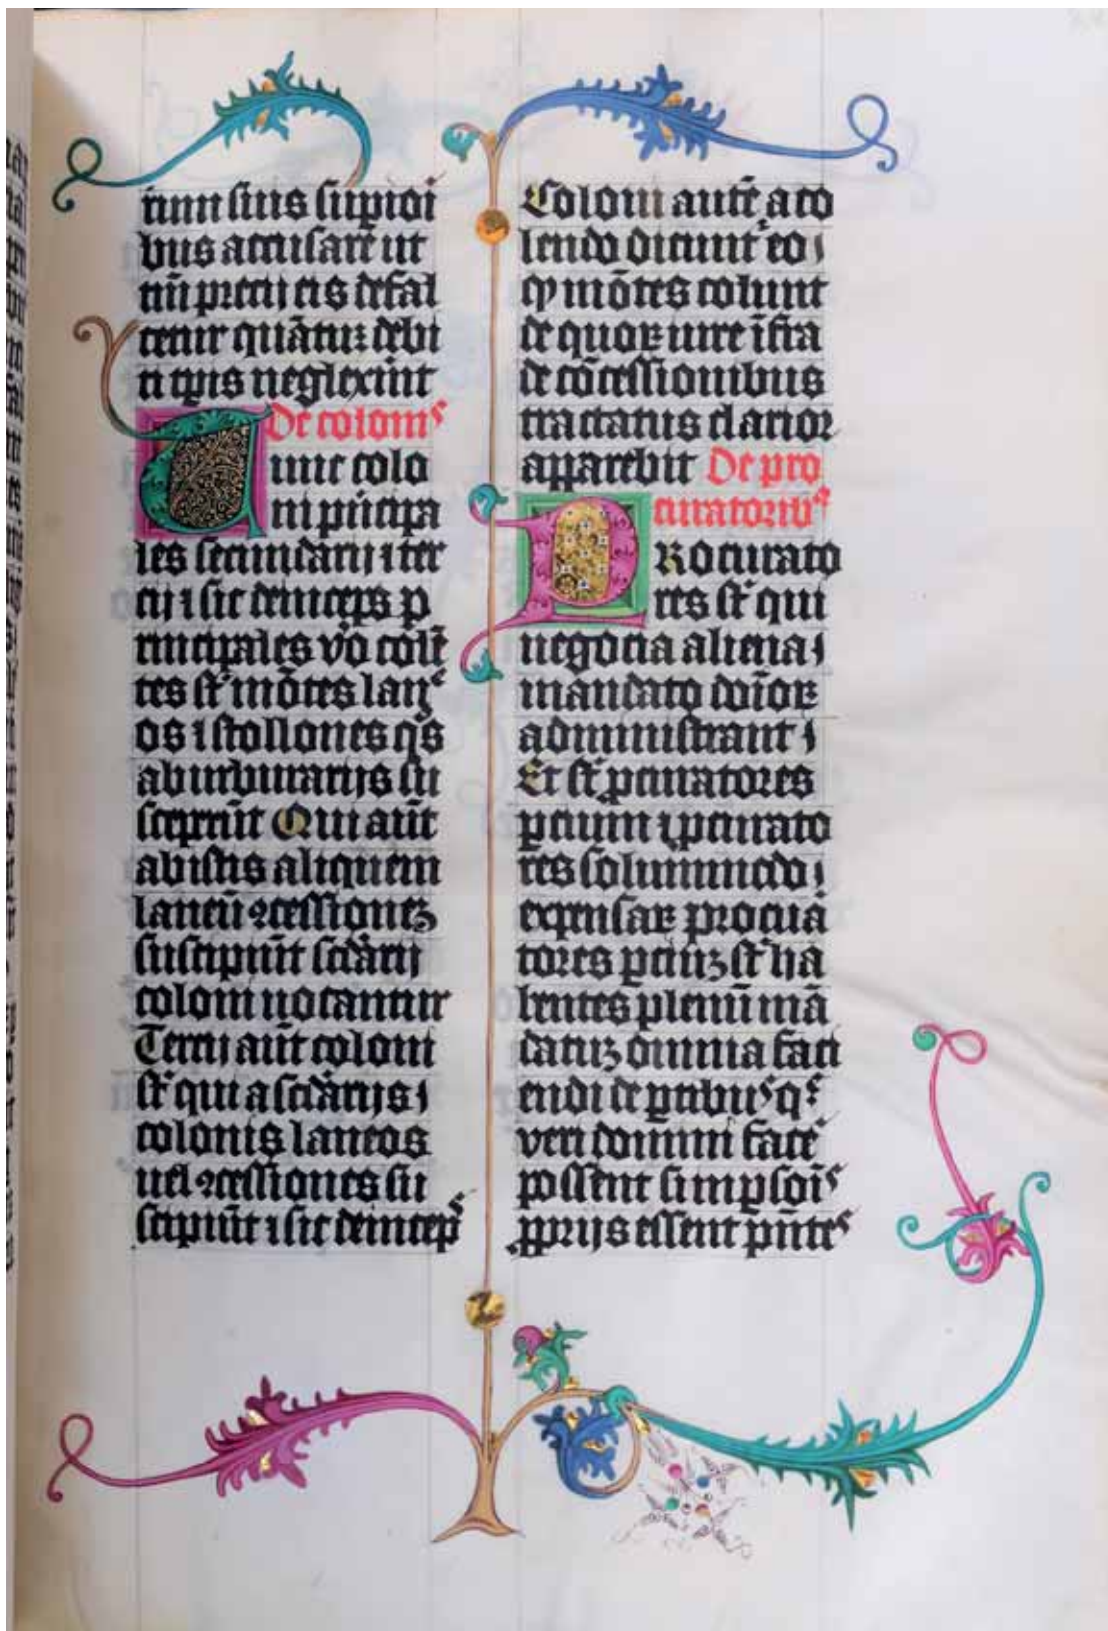 rium suis supioi
bus accusare ut
tm̄ precij eis defal
cetur quātuz debi
ti tp̄is neglexint
De colonis
Sunt colo
ni pricipa
les secundarij ⁊ ter
cij ⁊ sic deinceps p
rincipales vo colē
tes st mōtes lan
os ⁊ stollones qs
ab urburarijs su
scepeūt Qui aūt
ab istis aliquem
laneū ꝯcessionez
suscipiūt scdārij
coloni uocantur
Tercij aūt coloni
st qui a scdārijs
colonis laneos
uel ꝯcessiones su
scipiūt ⁊ sic deinceps
Coloni autē a co
lendo dicunt eo
ꝙ mōtes colunt
de quoꝝ iure īfra
de cōcessionibus
tractatus clarior
apparebit De pro
curatoribus
PRocurato
res st qui
negocia aliena
mandato dn̄oꝝ
administrant
Et st pcuratores
pcium ⁊ pcurato
res solummodo
expensaꝝ procura
tores pciuz st ha
bentes plenū mā
datuz omnia faci
endi de ptibus q
veri domini face
possent si mpsois
ꝓprijs essent pn̄tes